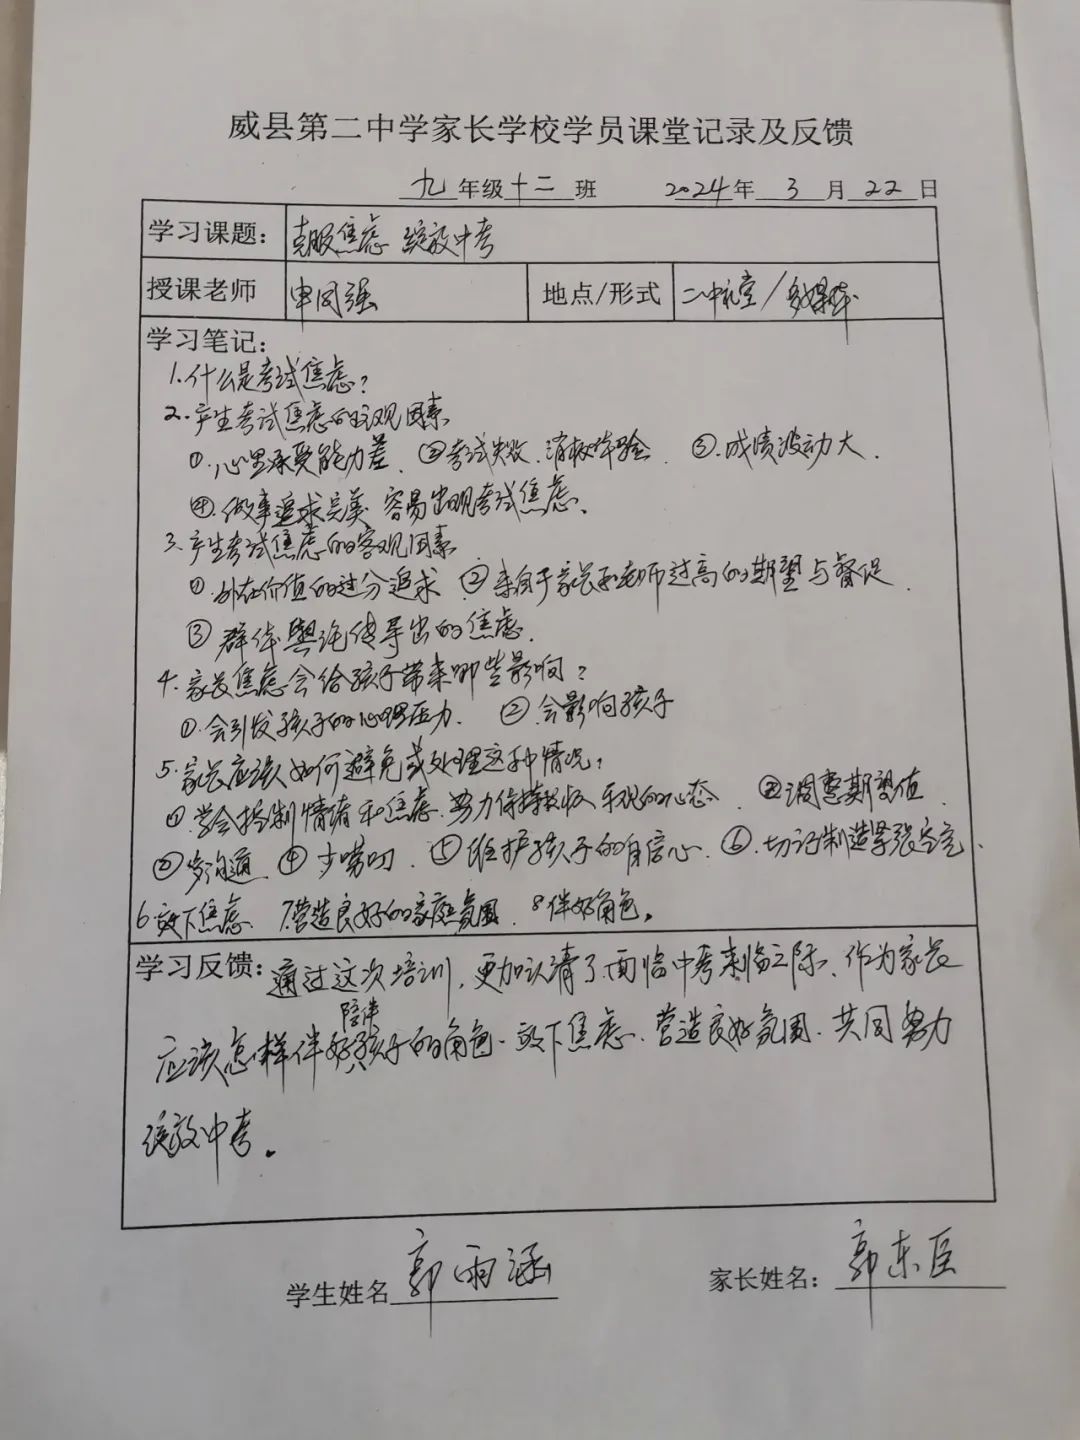 威县第二中学家长学校学员课堂记录及反馈
九 年级 十二 班 2024 年 3 月 22 日
学习课题： 克服焦虑 绽放中考
授课老师 申同强 地点/形式 二中礼堂/多媒体
学习笔记：
1.什么是考试焦虑？
2.产生考试焦虑的主观因素
①.心里承受能力差. ②考试失败.消极体验 ③.成绩波动大.
④.做事追求完美.容易出现考试焦虑.
3.产生考试焦虑的客观因素
①.外在价值的过分追求 ②来自于家长和老师过高的期望与督促.
③群体舆论传导出的焦虑.
4.家长焦虑会给孩子带来哪些影响？
①.会引发孩子的心理压力. ②会影响孩子
5.家长应该如何避免或处理这种情况？
①.学会控制情绪和焦虑.努力保持 平观的心态. ②调整期望值.
③多沟通 ④少唠叨. ⑤维护孩子的自信心. ⑥.切记制造紧张空气.
6.放下焦虑. 7.营造良好的家庭氛围. 8伴好角色。
学习反馈：通过这次培训，更加认清了.面临中考来临之际.作为家长
陪伴
应该怎样伴好孩子的角色.放下焦虑.营造良好氛围.共同努力
绽放中考。
学生姓名 郭雨涵 家长姓名： 郭东臣